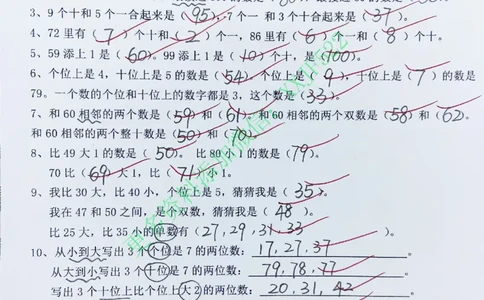 3、9个十和5个一合起来是（95），7个一和3个十合起来是（37）。
4、72里有（7）个十和（2）个一，86里有（6）个一和（8）个十。
5、59添上1是（60）。99添上1是（10）个十，是（100）。
6、个位上是4，十位上是5的数是（54），个位上是（9），十位上是（7）的数是
79。一个数的个位和十位上的数字都是3，这个数是（33）。
7、和60相邻的两个数是（59）和（61）。和60相邻的两个双数是（58）和（62）。
和60相邻的两个整十数是（50）和（70）。
8、比49大1的数是（50）。比80小1的数是（79）。
70比（69）大1，比（71）小1。
9、我比30大，比40小，个位上是5，猜猜我是（35）。
我在47和50之间，是个双数，猜猜我是（48）。
比25大，比35小的单数有（27，29，31，33）。
10、从小到大写出3个个位是7的两位数：17，27，37。
从大到小写出3个十位是7的两位数：79，78，77。
写出3个十位上比个位上大2的两位数：20，31，42。